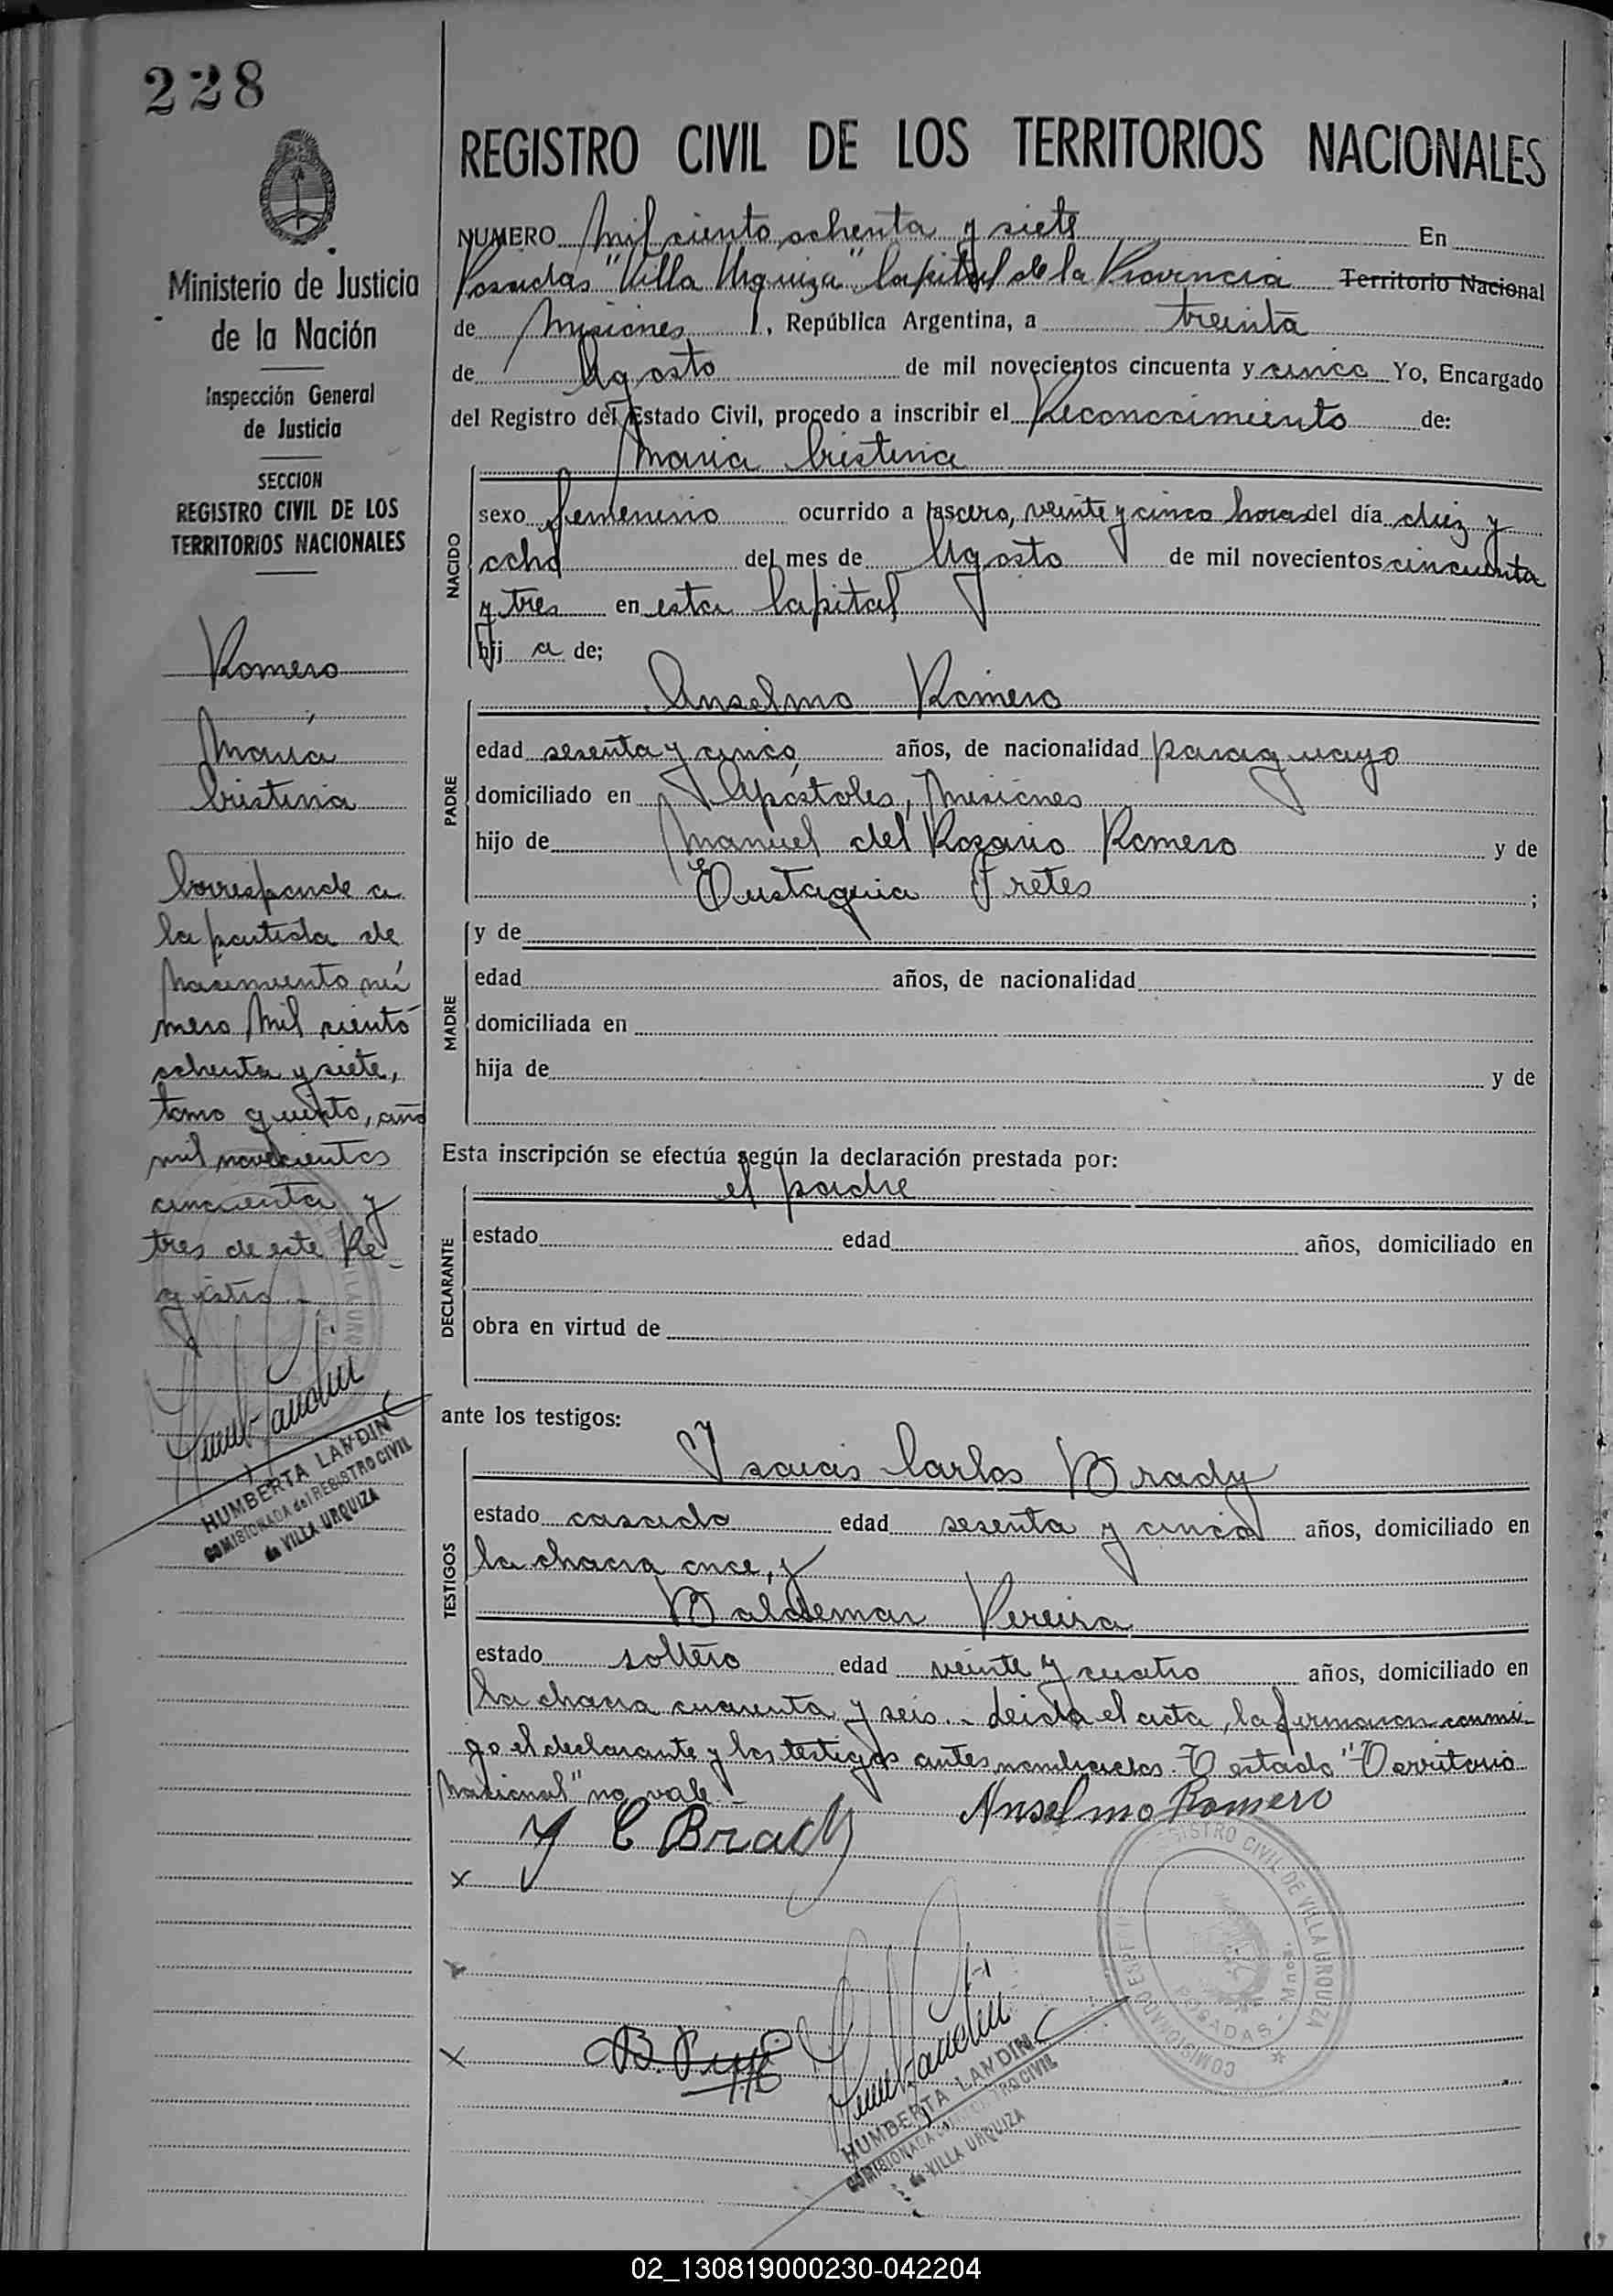 228
Ministerio de Justicia
de la Nación
Inspección General
de Justicia
SECCION
REGISTRO CIVIL DE LOS
TERRITORIOS NACIONALES
Romero
María
Cristina
Corresponde a
la partida de
Nacimiento nú
mero Mil ciento
ochenta y siete,
tomo quinto, año
mil novecientos
cincuenta y
tres de este Re-
gistro.-
HUMBERTA LANDIN
COMISIONADA del REGISTRO CIVIL
de VILLA URQUIZA
REGISTRO CIVIL DE LOS TERRITORIOS NACIONALES
NUMERO Mil ciento ochenta y siete En
Posadas "Villa Urquiza" Capital de la Provincia Territorio Nacional
de Misiones, República Argentina, a treinta
de Agosto de mil novecientos cincuenta y cinco Yo, Encargado
del Registro del Estado Civil, procedo a inscribir el Reconocimiento de:
María Cristina
NACIDO
sexo femenino ocurrido a las cero, veinte y cinco horas del día diez y
ocho del mes de Agosto de mil novecientos cincuenta
y tres en esta Capital
hij a de;
PADRE
Anselmo Romero
edad sesenta y cinco años, de nacionalidad paraguayo
domiciliado en Apóstoles, Misiones
hijo de Manuel del Rosario Romero y de
Eustaquia Fretes ;
MADRE
y de
edad años, de nacionalidad
domiciliada en
hija de y de
Esta inscripción se efectúa según la declaración prestada por:
el padre
DECLARANTE
estado edad años, domiciliado en
obra en virtud de
ante los testigos:
TESTIGOS
Isaias Carlos Brady
estado casado edad sesenta y cinco años, domiciliado en
la chacra once, y
Baldemar Pereira
estado soltero edad veinte y cuatro años, domiciliado en
la chacra cuarenta y seis.- Leida el acta, la firmaron conmi-
go el declarante y los testigos antes nombrados. Testado "Territorio
Nacional" no vale.-
Anselmo Romero
Y C Brady
x
x
REGISTRO CIVIL DE VILLA URQUIZA
POSADAS - Mnes.
HUMBERTA LANDIN
COMISIONADA del REGISTRO CIVIL
de VILLA URQUIZA
02_130819000230-042204